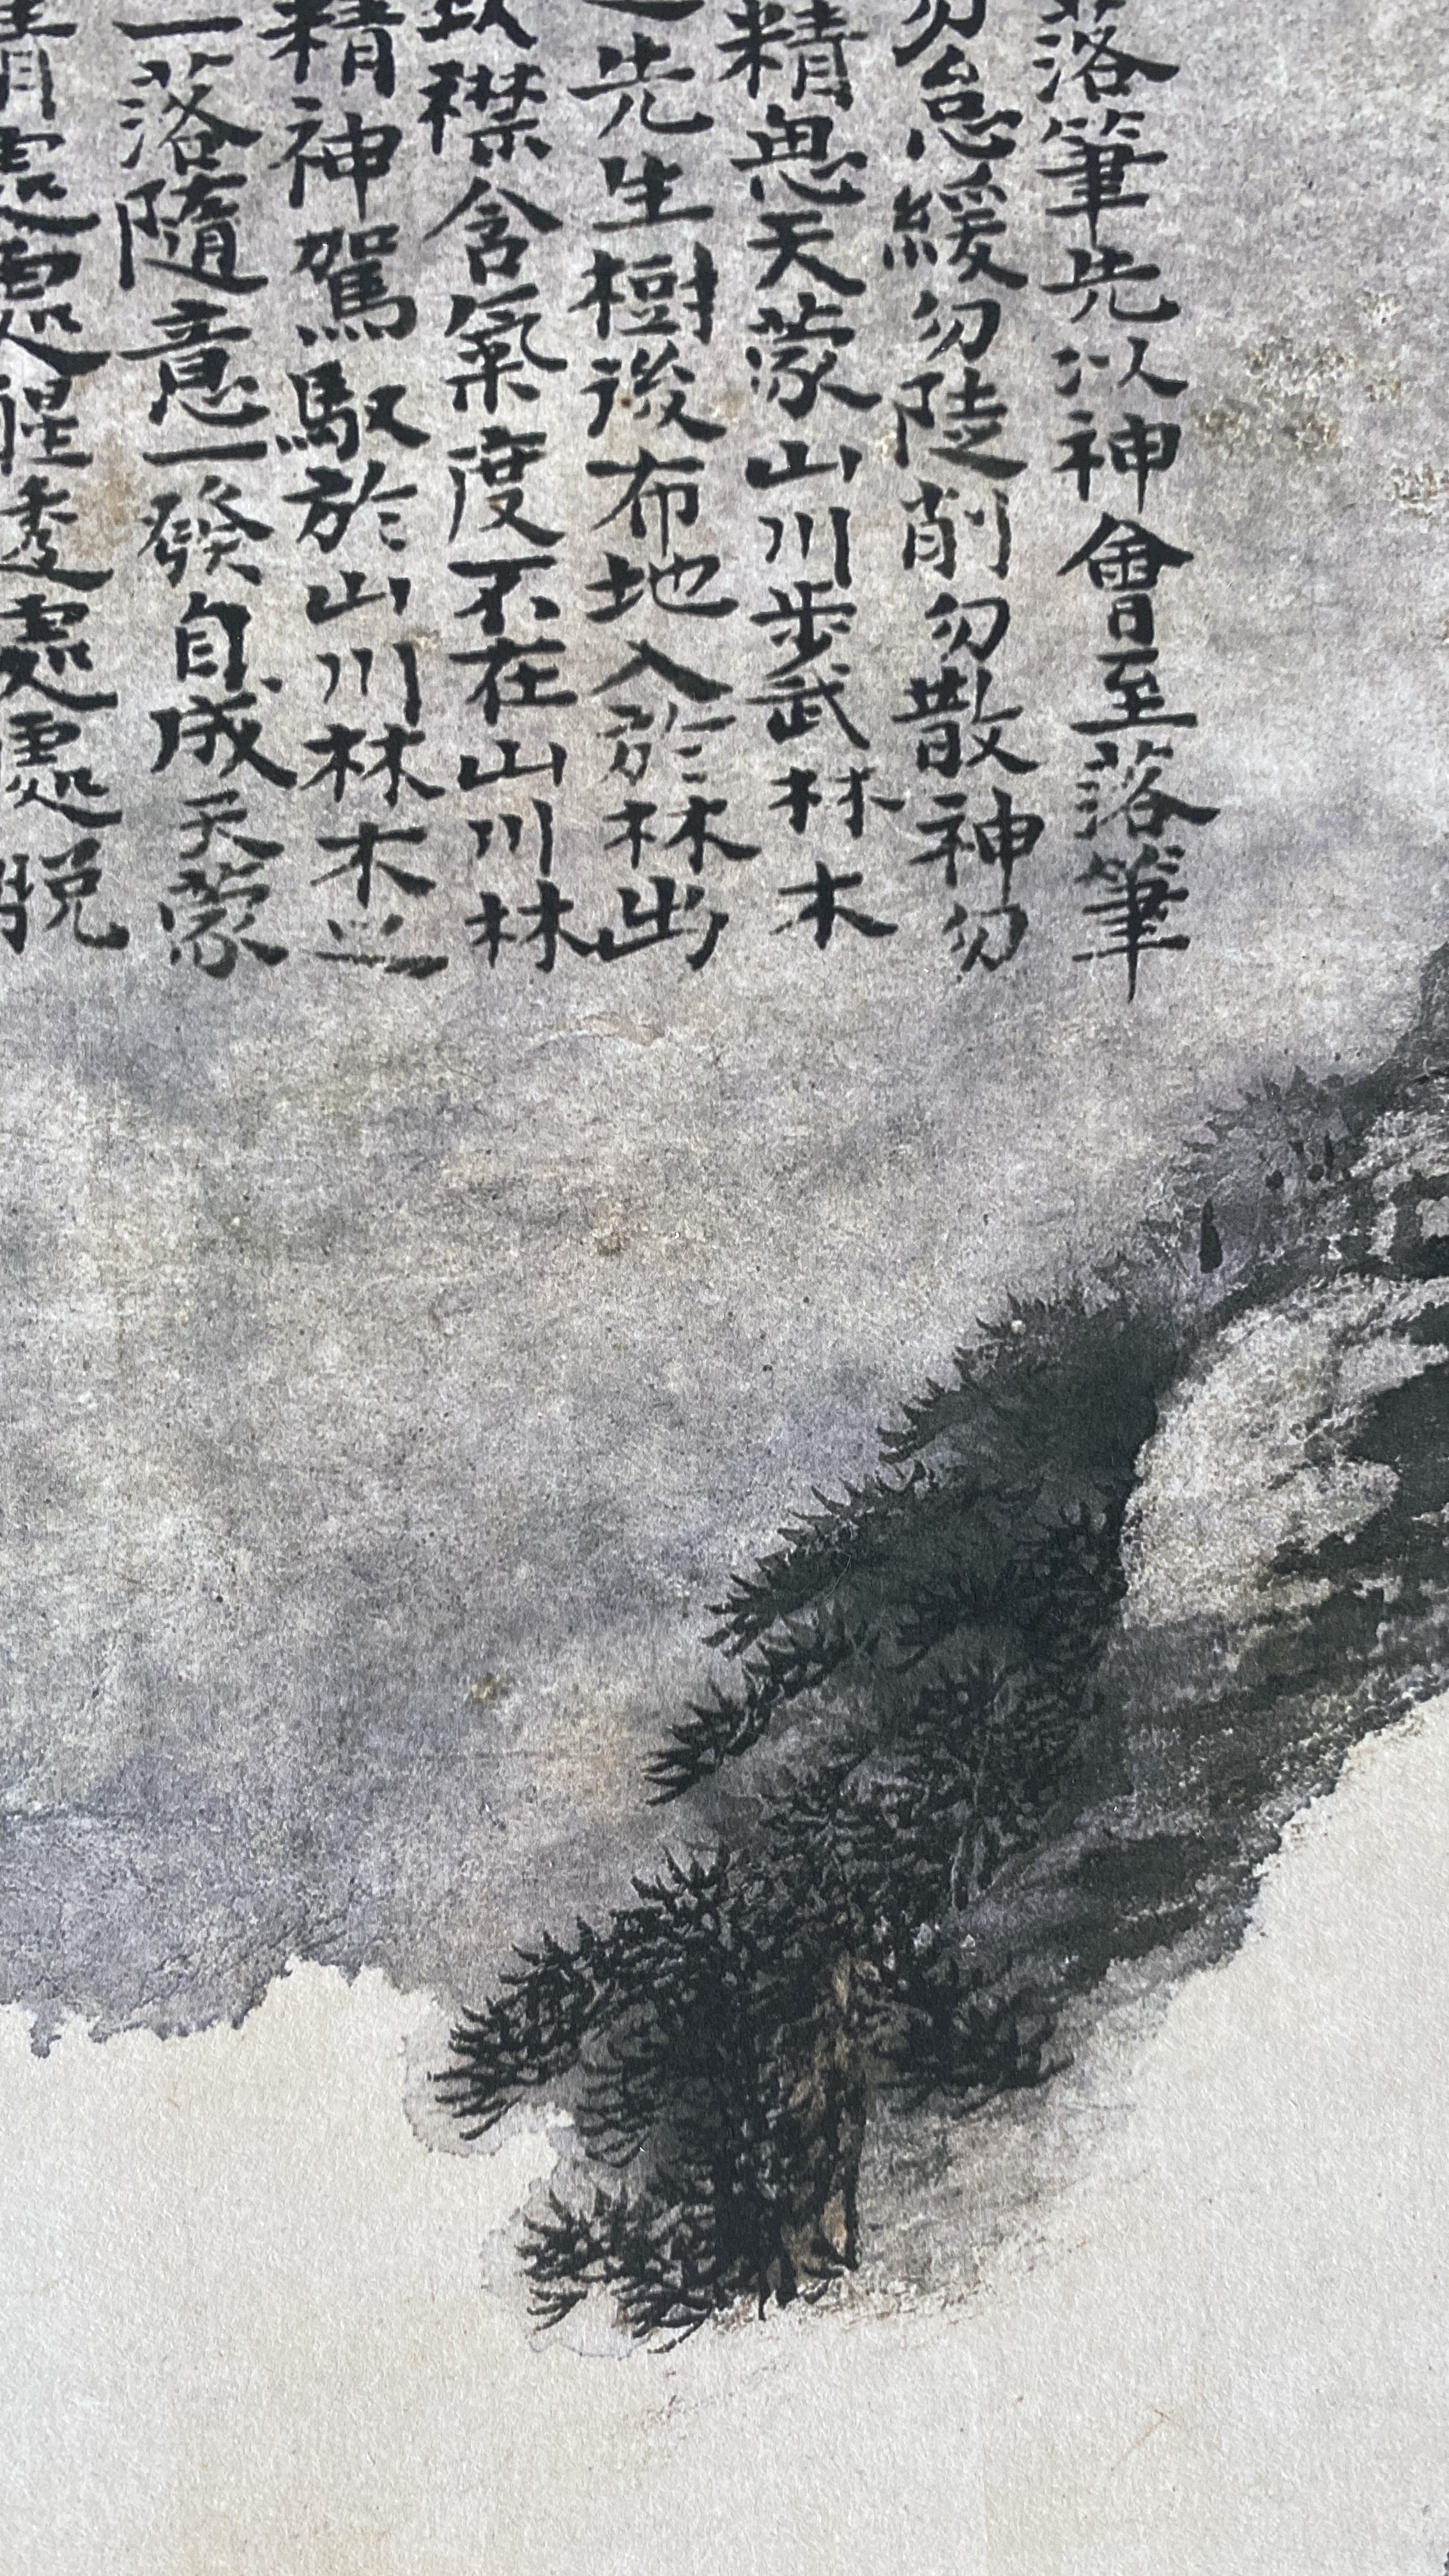 落筆先以神會至落筆
勿怠緩勿陡削勿散神勿
精思天蒙山川步武林木
先生樹後布地入於林出
襟含氣度不在山川林
精神駕馭於山川林木之
一落隨意一發自成天蒙
處處醒透處處脫